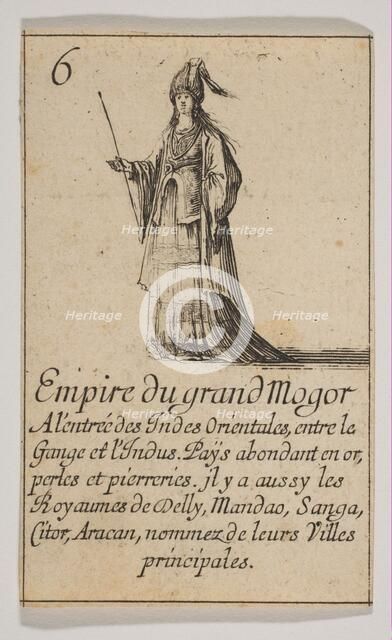 6
Heritage Heritage
Heritage Heritage
Heritage Heritage
Empire du grand Mogor
A l'entrée des Indes Orientales, entre le
Gange et l'Indus. Païs abondant en or,
perles et pierreries. jl y a aussy les
Royaumes de Delly, Mandao, Sanga,
Citor, Aracan, nommez de leurs Villes
principales.